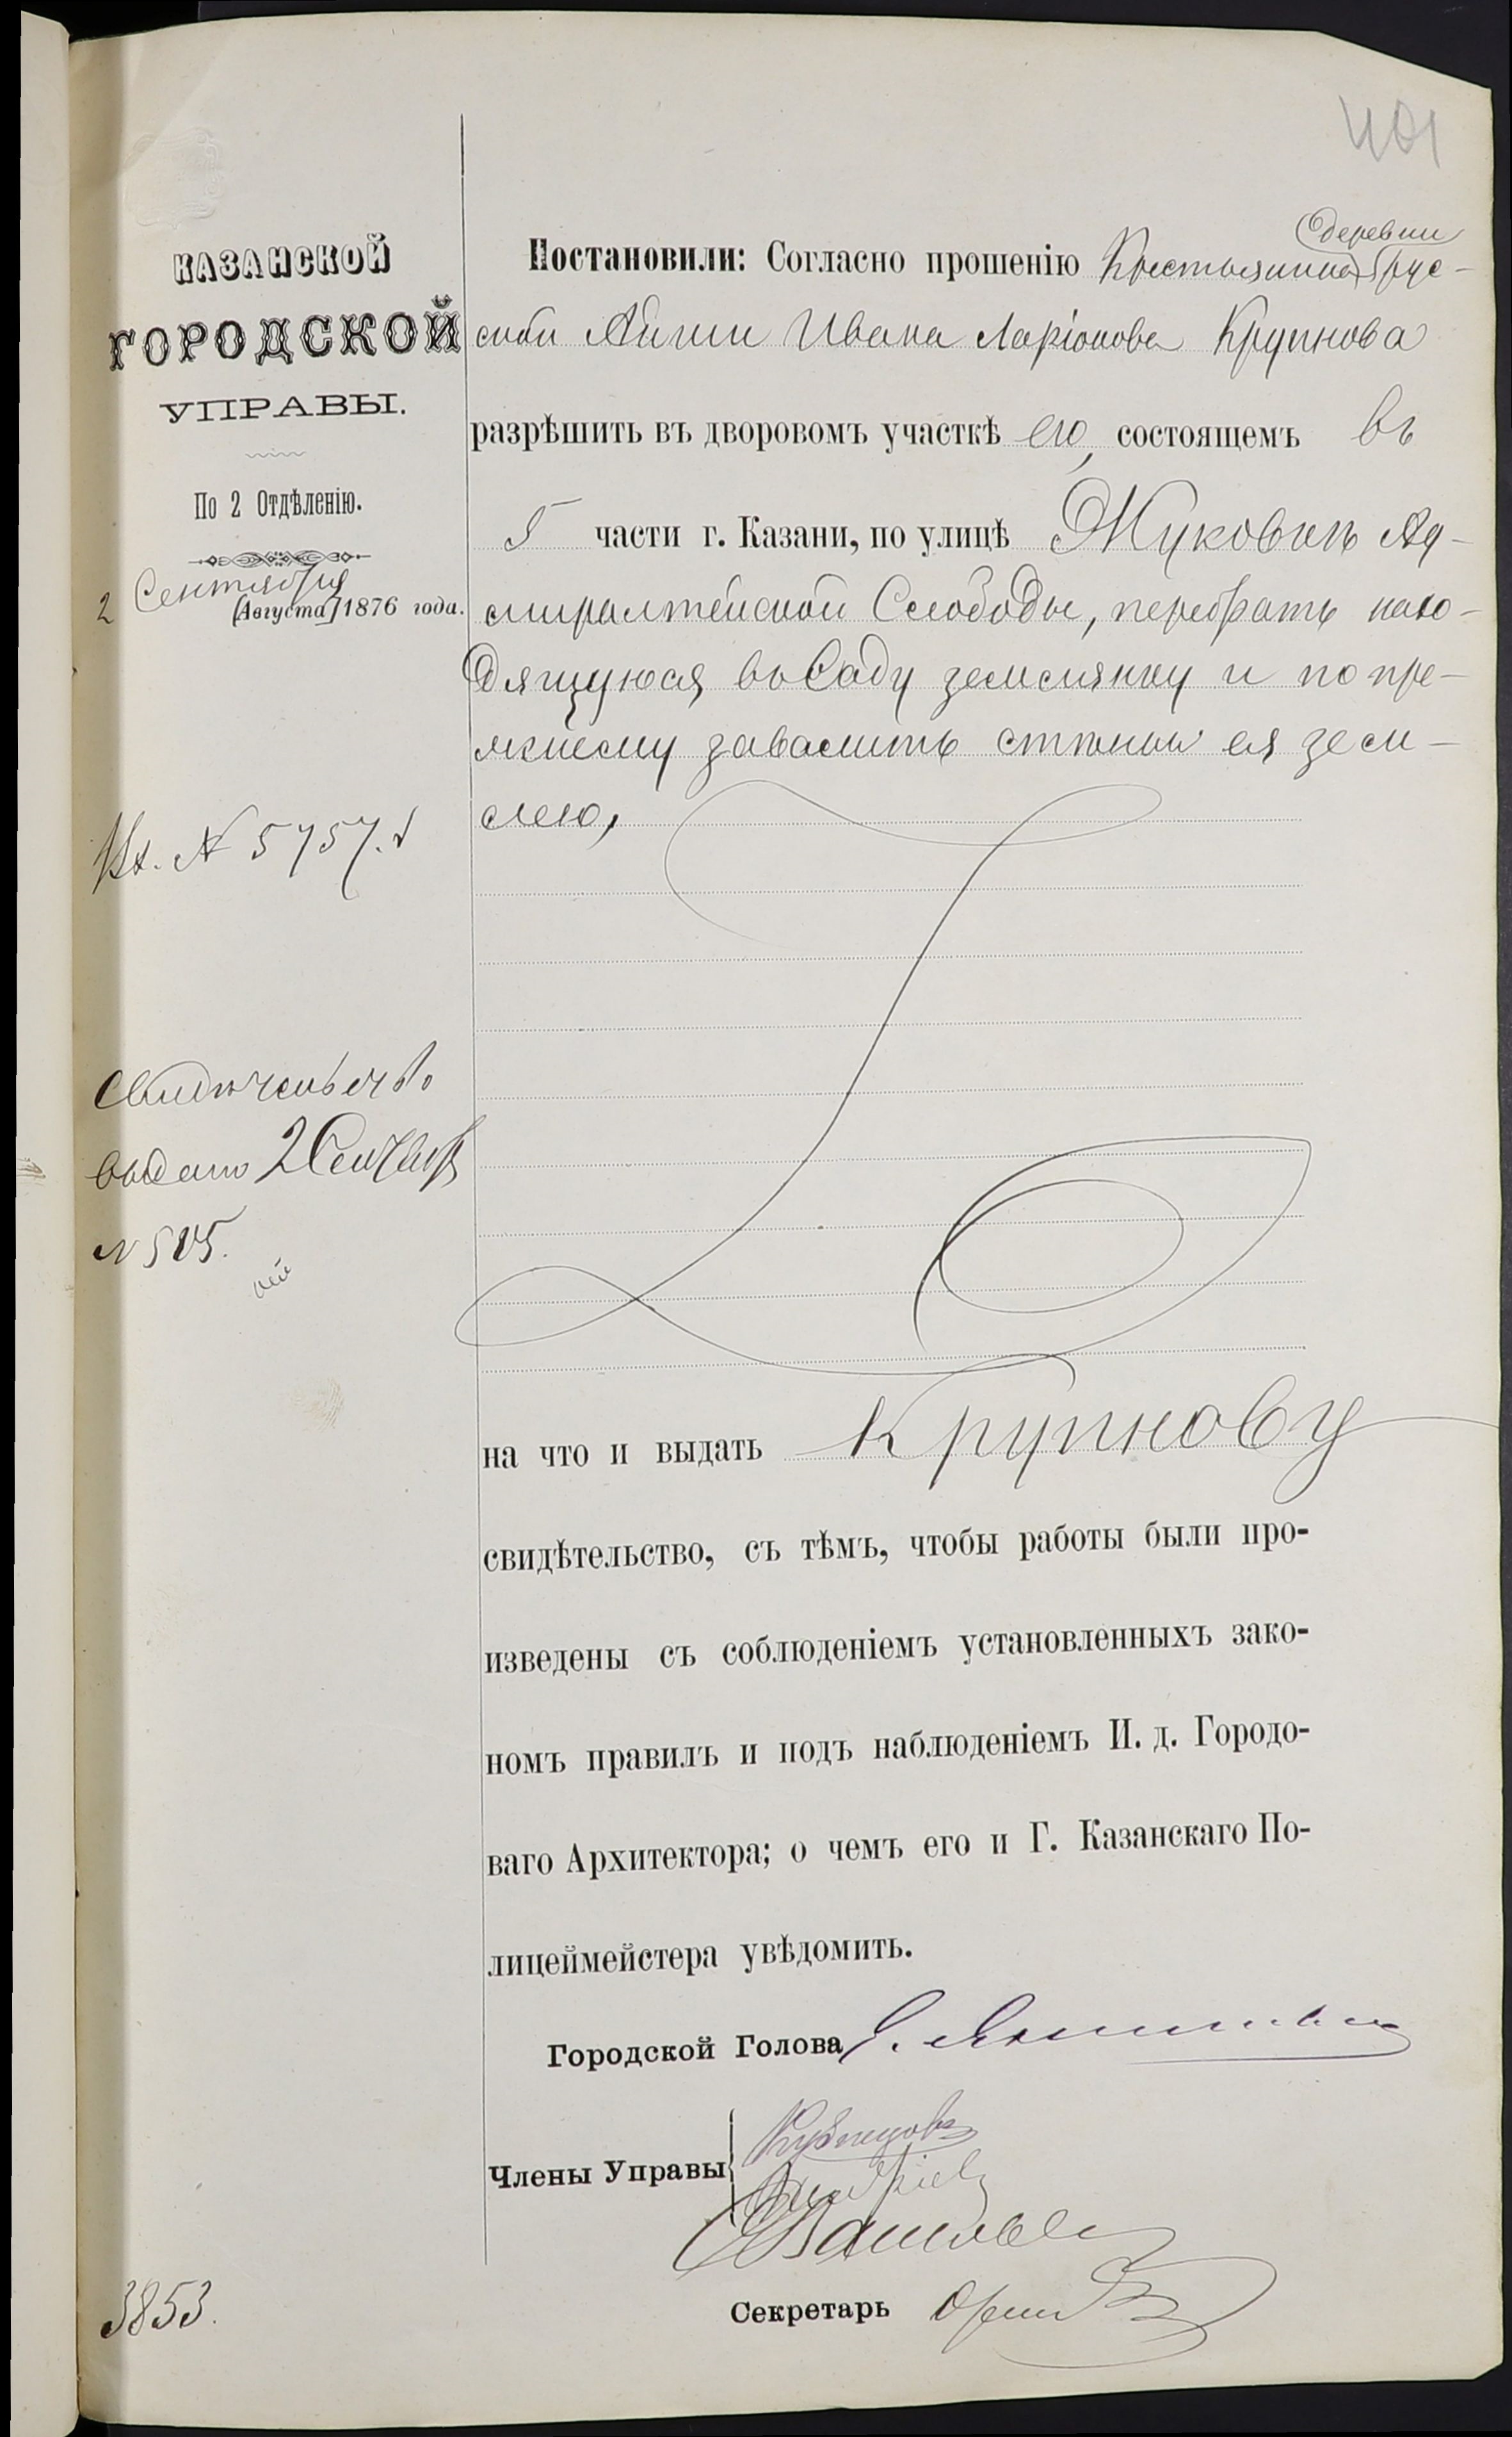 401
КАЗАНСКОЙ
ГОРОДСКОЙ
УПРАВЫ.
По 2 Отдѣленію.
2 Сентября
[Августа] 1876 года.
Вх. № 5757.
Свидѣтельство
выдано 2 Сентяб
№ 505.
3853.
деревни
Постановили: Согласно прошенію Крестьянина Рус-
ской Айши Ивана Ларіонова Крупнова
разрѣшить въ дворовомъ участкѣ его, состоящемъ въ
5 части г. Казани, по улицѣ Жуковкѣ Ад-
миралтейской Слободы, перебрать нахо-
дящуюся въ саду землянку и по пре-
жнему завалить стѣны ея зем-
лею,
на что и выдать Крупнову
свидѣтельство, съ тѣмъ, чтобы работы были про-
изведены съ соблюденіемъ установленныхъ зако-
номъ правилъ и подъ наблюденіемъ И. д. Городо-
ваго Архитектора; о чемъ его и Г. Казанскаго По-
лицеймейстера увѣдомить.
Городской Голова
Члены Управы
Кузнецовъ
Секретарь